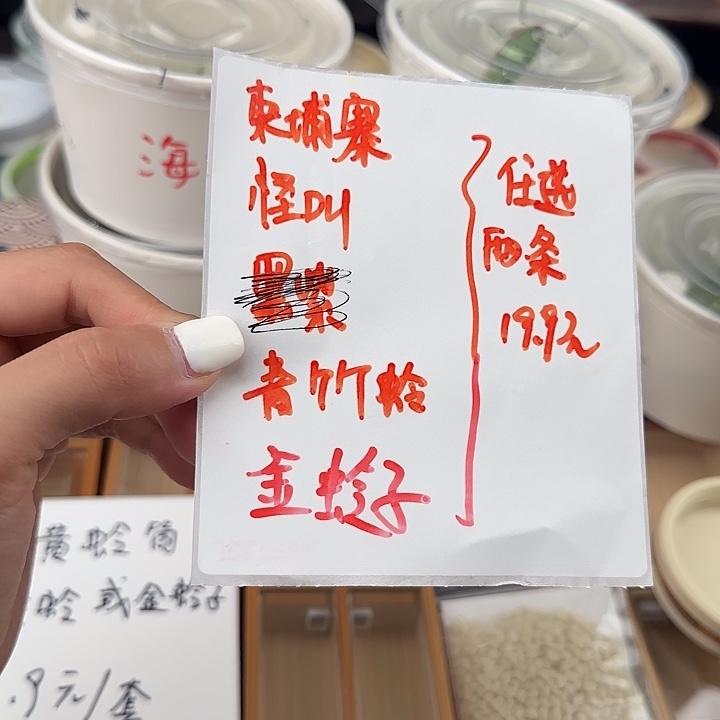 柬埔寨
怪叫
青竹蛉
金蛉子
任选
两条
19.9元
海
黄蛉筒
蛉或金蛉子
.9元/套